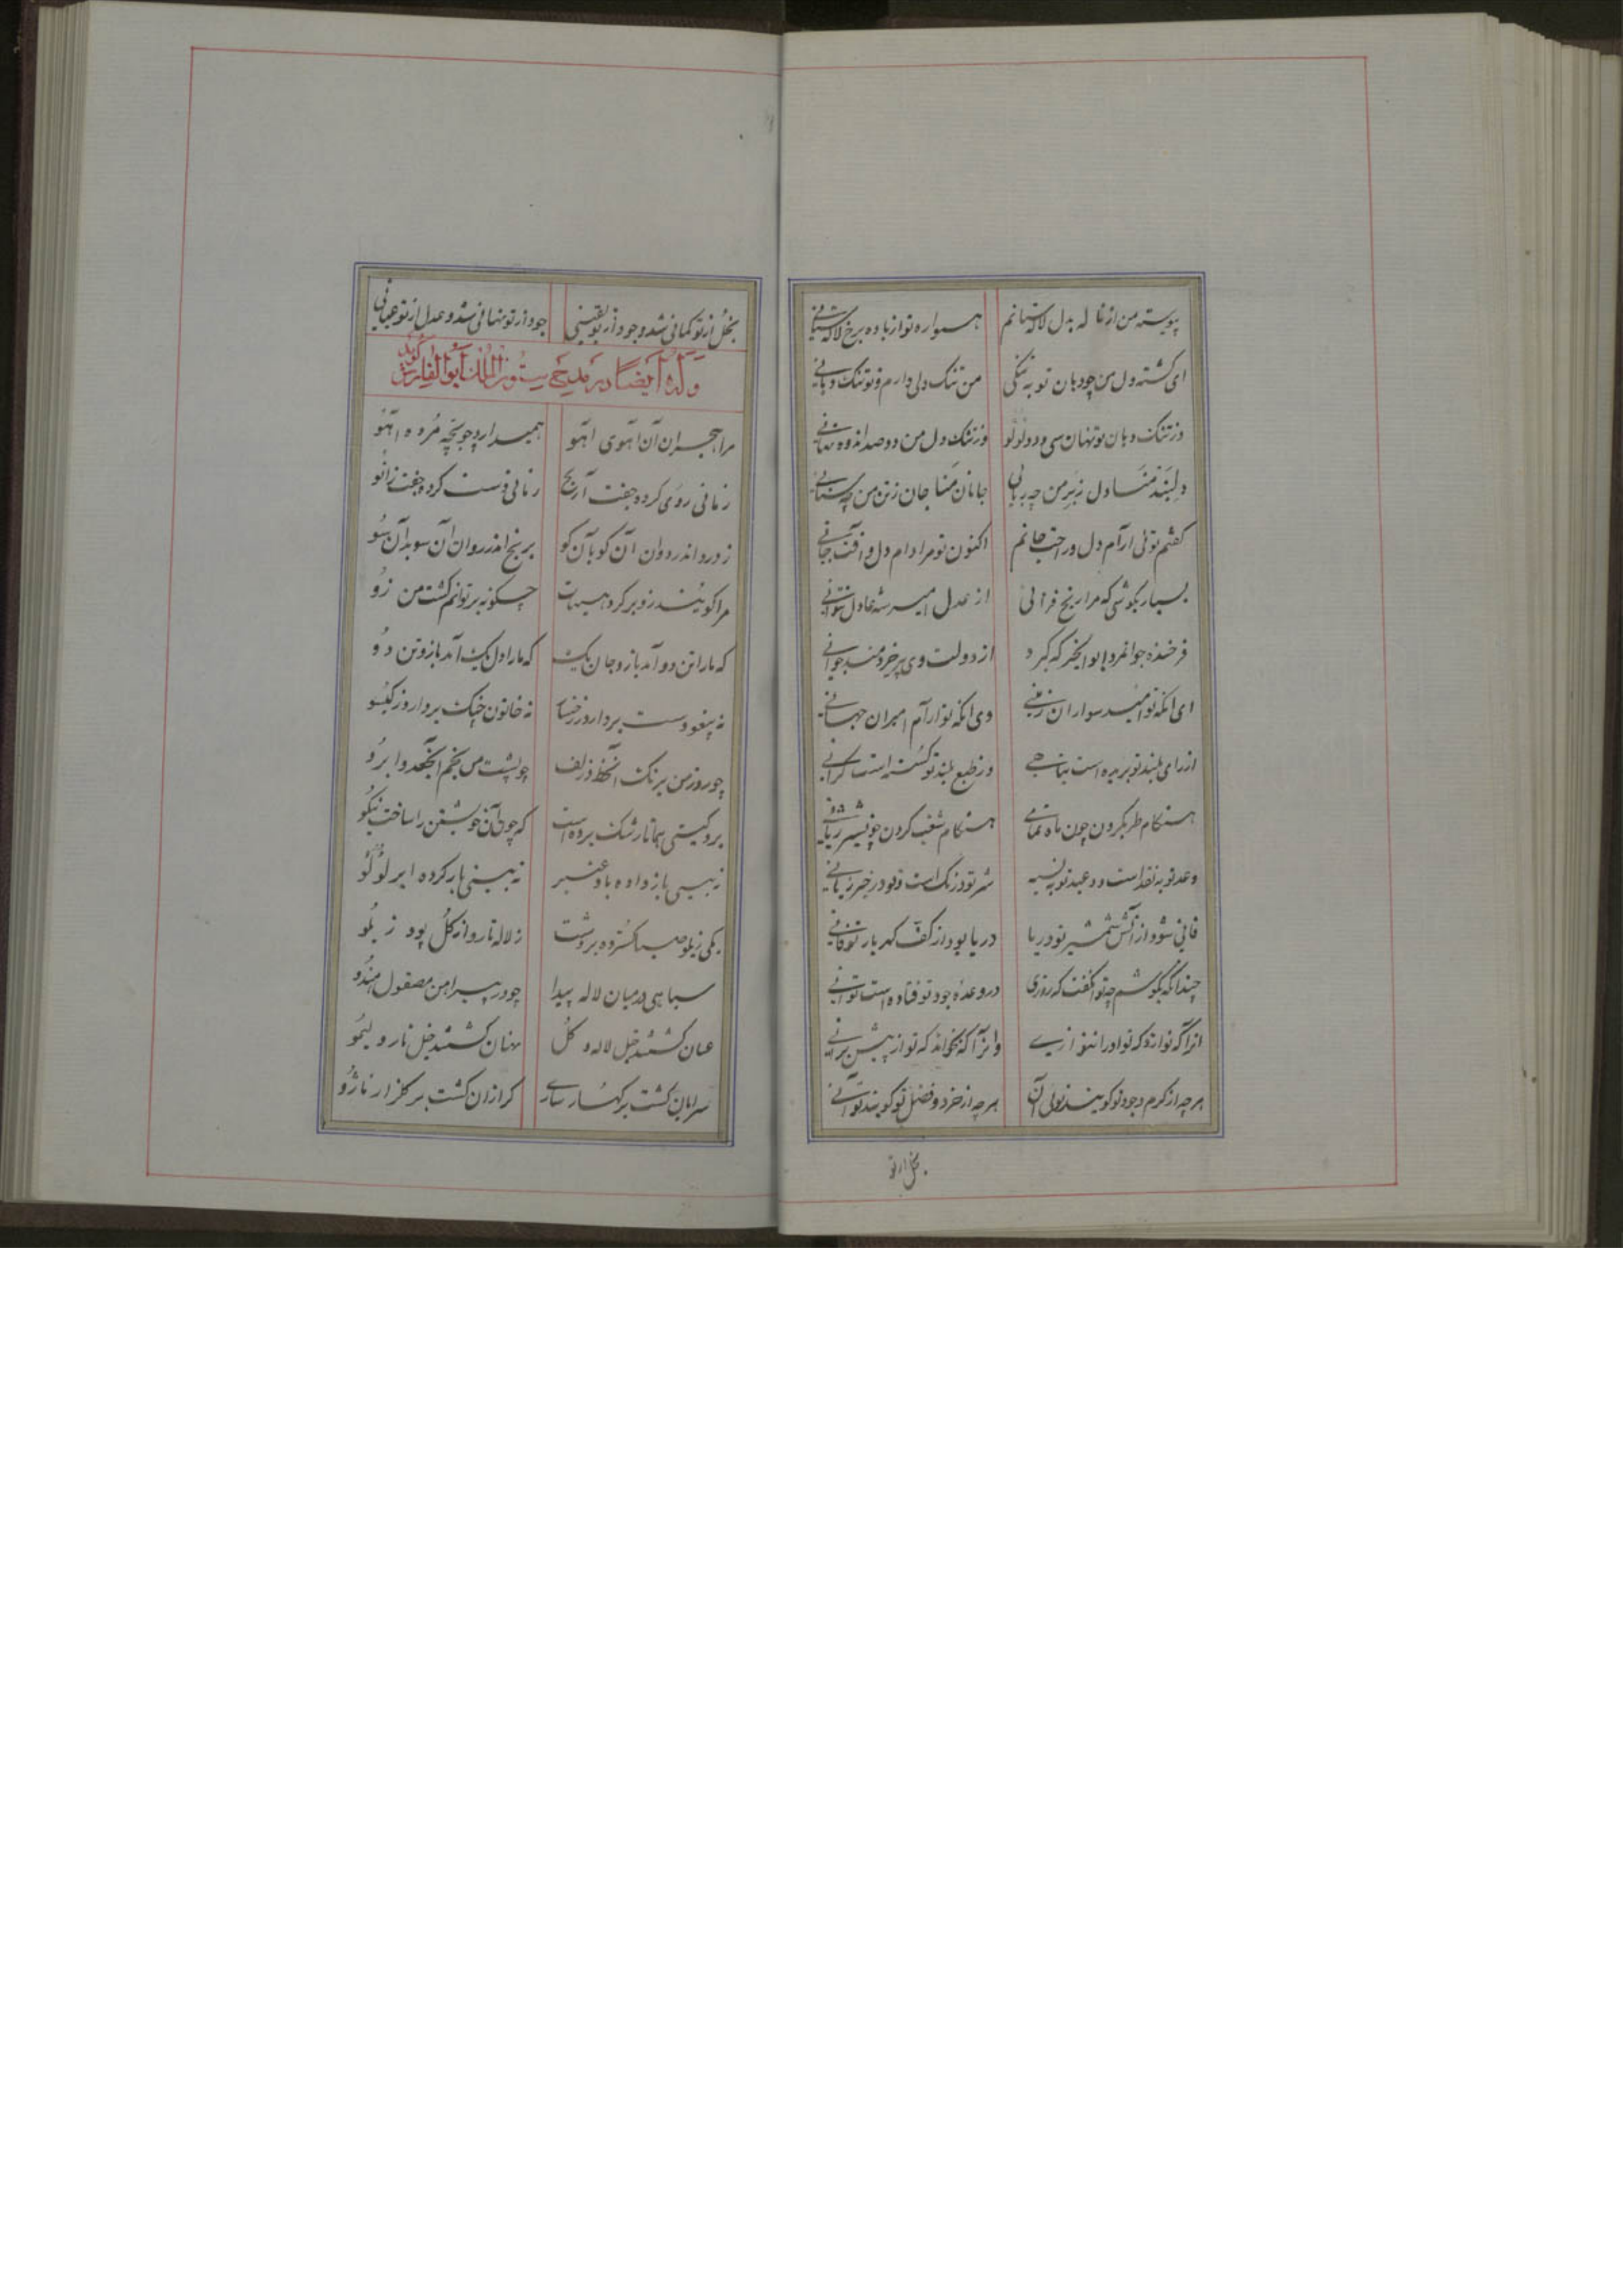 پیوسته من از ناله بدل لاله ستانم همواره تو از باده برخ لاله ستانی
ای گشته دل من چو دهان تو به تنگی من تنگ دلی دارم و تو تنگ دهانی
در تنگ دهان تو نهان سی و دو لولو وز تنگ دل من دو صد اندوه نهانی
دلبند منا دل ز بر من چه ربایی جانان منا جان ز تن من چه ستانی
گفتم توئی آرام دل و راحت جانم اکنون تو مرا دام دل و آفت جانی
بسیار بکوشی که مرا رنج فزائی از عدل امیر شه عادل نتوانی
فرخنده جوانمرد ابوالخیر که گیرد از دولت وی پیر خردمند جوانی
ای آنکه تو امید سواران زمینی وی آنکه تو آرام امیران جهانی
از رای بلند تو بریده است وز طبع بلند تو گسسته است گرانی
هنگام طرب کردن چون ماه تمامی هنگام شغب کردن چو شیر ژیانی
وعد تو به نقد است و وعید تو به نسیه شر تو درنگ است و تو در خیر زمانی
فانی شود از آتش شمشیر تو دریا دریا بود از کف گهربار تو فانی
چندانکه بگوشم چه تو گفت که روزی در وعده جود تو فتاده است توانی
آنرا که نوازد که تو او را وانرا که بخواند که تو از پیش برانی
هر چه از کرم و جود تو گویند توئی آن هر چه از خرد و فضل تو گویند تو آنی
بخل از تو
بخل از تو گمانی شد و جود از تو یقینی جود از تو نهانی شد و عدل از تو عیانی
وله ایضا در مدح ابوالفارس گوید
مرا هجران آن آهوی آهو همیدارد چو بچه مرده آهو
زمانی روی کرده جفت آرنج زمانی دست کرده جفت زانو
ز درد اندر دوان آن کو بآن کو برنج اندر روان آن سو بدآن سو
مرا گویند زو برگرد هیهات چگونه برتوانم گشت من زو
که ما را تن دو آمد باز و جان یک که ما را دل یک آمد باز و تن دو
نه یبغو دست بردارد ز رخسار نه خاتون چنگ بردارد ز گیسو
چو روز من برنگ آنخط و زلف چو پشت من بخم آنجعد و ابرو
برو گیتی همانا رشک برده است که چون آن خویشتن را ساخت نیکو
نه بینی باز داده باد عنبر نه بینی بار کرده ابر لؤلؤ
یکی زیلو صبا گسترده بر دشت ز لاله تار و از گل پود زیلو
سیاهی در میان لاله پیدا چو در پیراهن مصقول هندو
عیان گشتند خیل لاله و گل نهان گشتند خیل نار و لیمو
سرایان گشت بر کهسار ساری گرازان گشت بر گلزار ناژو